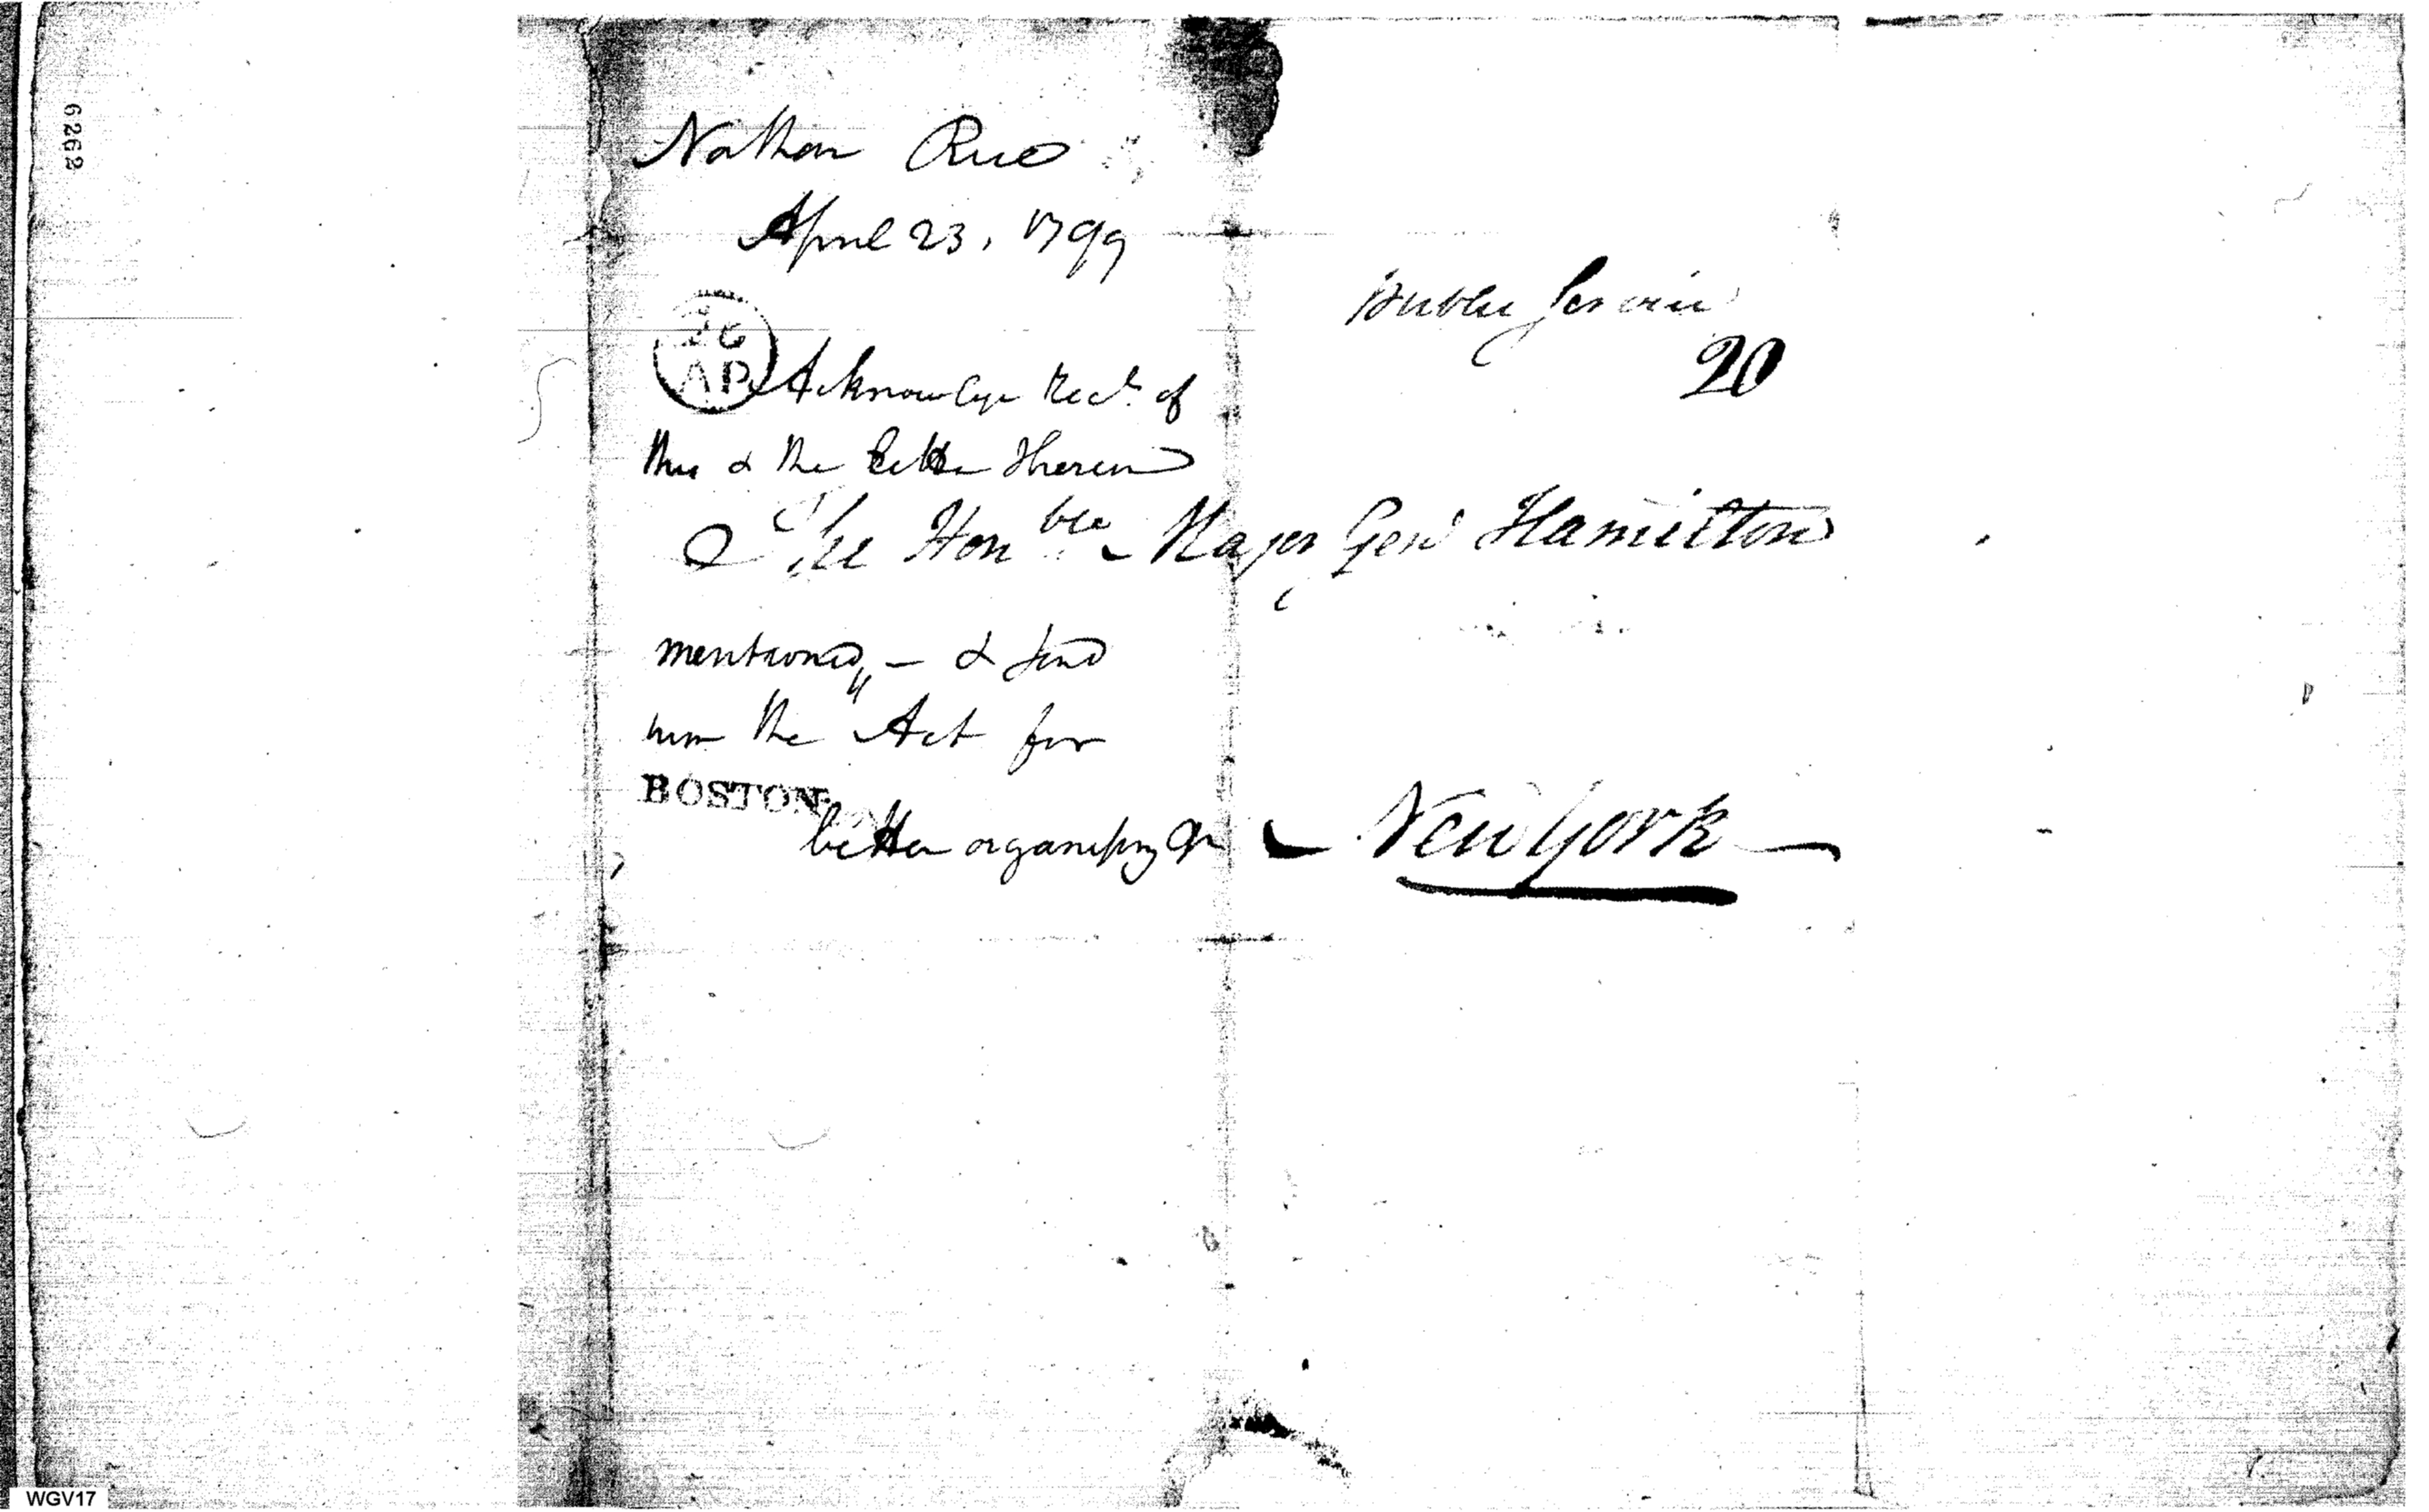 6262
Nathan Rice
April 23, 1799
Public Service
20
26
AP
Acknowlege Rect. of
this & the letter therein
The Honble Major Genl Hamilton
mentioned, — & send
him the Act for
BOSTON
better organising &
New York
WGV17